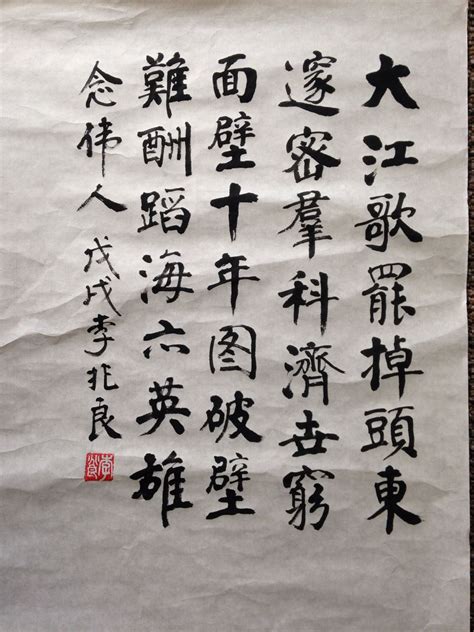 大江歌罷掉頭東
邃密羣科濟世窮
面壁十年图破壁
難酬蹈海六英雄
念伟人 戊戌李兆良